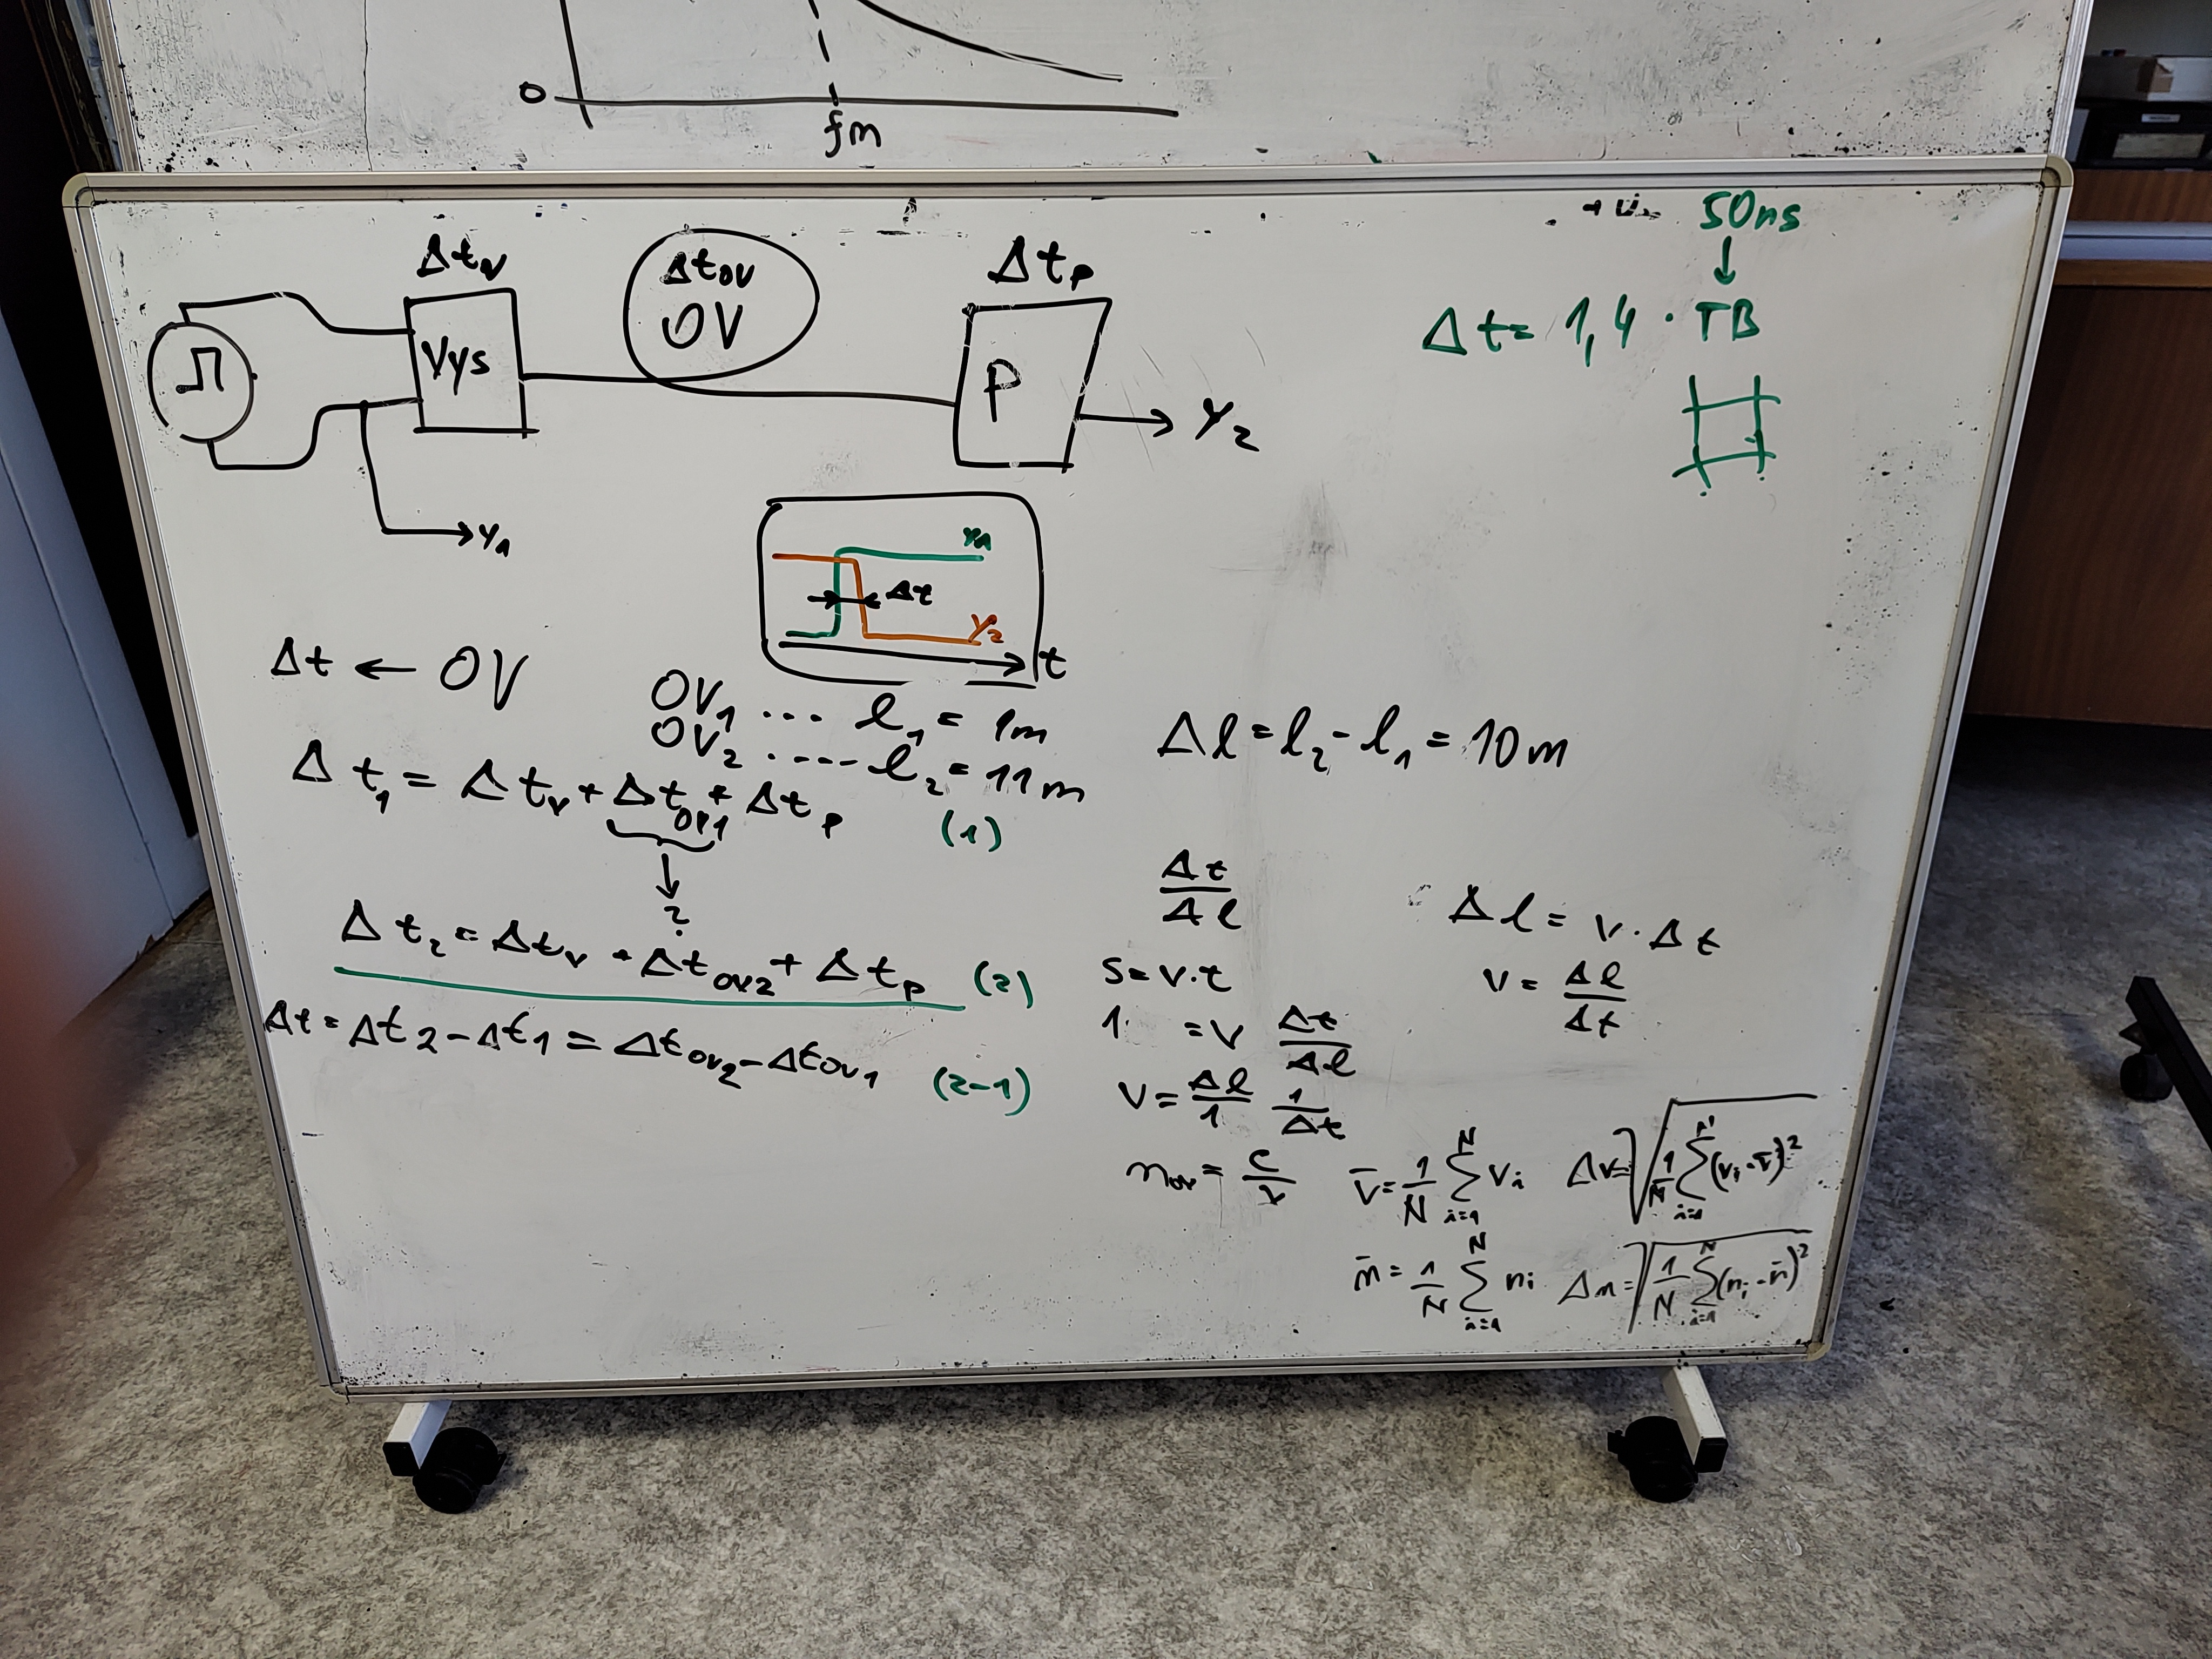 0
fm
50ns
Δt = 1,4 · TB
Δt_v
Δt_ov
OV
Δt_p
Vys
P
y_2
y_1
y_1
Δt
y_2
t
Δt ← OV
OV_1 ... l_1 = 1m
OV_2 .---- l_2 = 11m
Δl = l_2 - l_1 = 10m
Δt_1 = Δt_v + Δt_ov1 + Δt_p (1)
?
Δt_2 = Δt_v + Δt_ov2 + Δt_p (2)
Δt = Δt_2 - Δt_1 = Δt_ov2 - Δt_ov1 (2-1)
Δt/Δl
s = v.t
1 = v Δt/Δl
v = Δl/1 1/Δt
Δl = v · Δt
v = Δl/Δt
n_ov = c/v
v̄ = 1/N ∑_{i=1}^{N} v_i Δv = √(1/N ∑_{i=1}^{N} (v_i - v̄)²)
n̄ = 1/N ∑_{i=1}^{N} n_i Δn = √(1/N ∑_{i=1}^{N} (n_i - n̄)²)